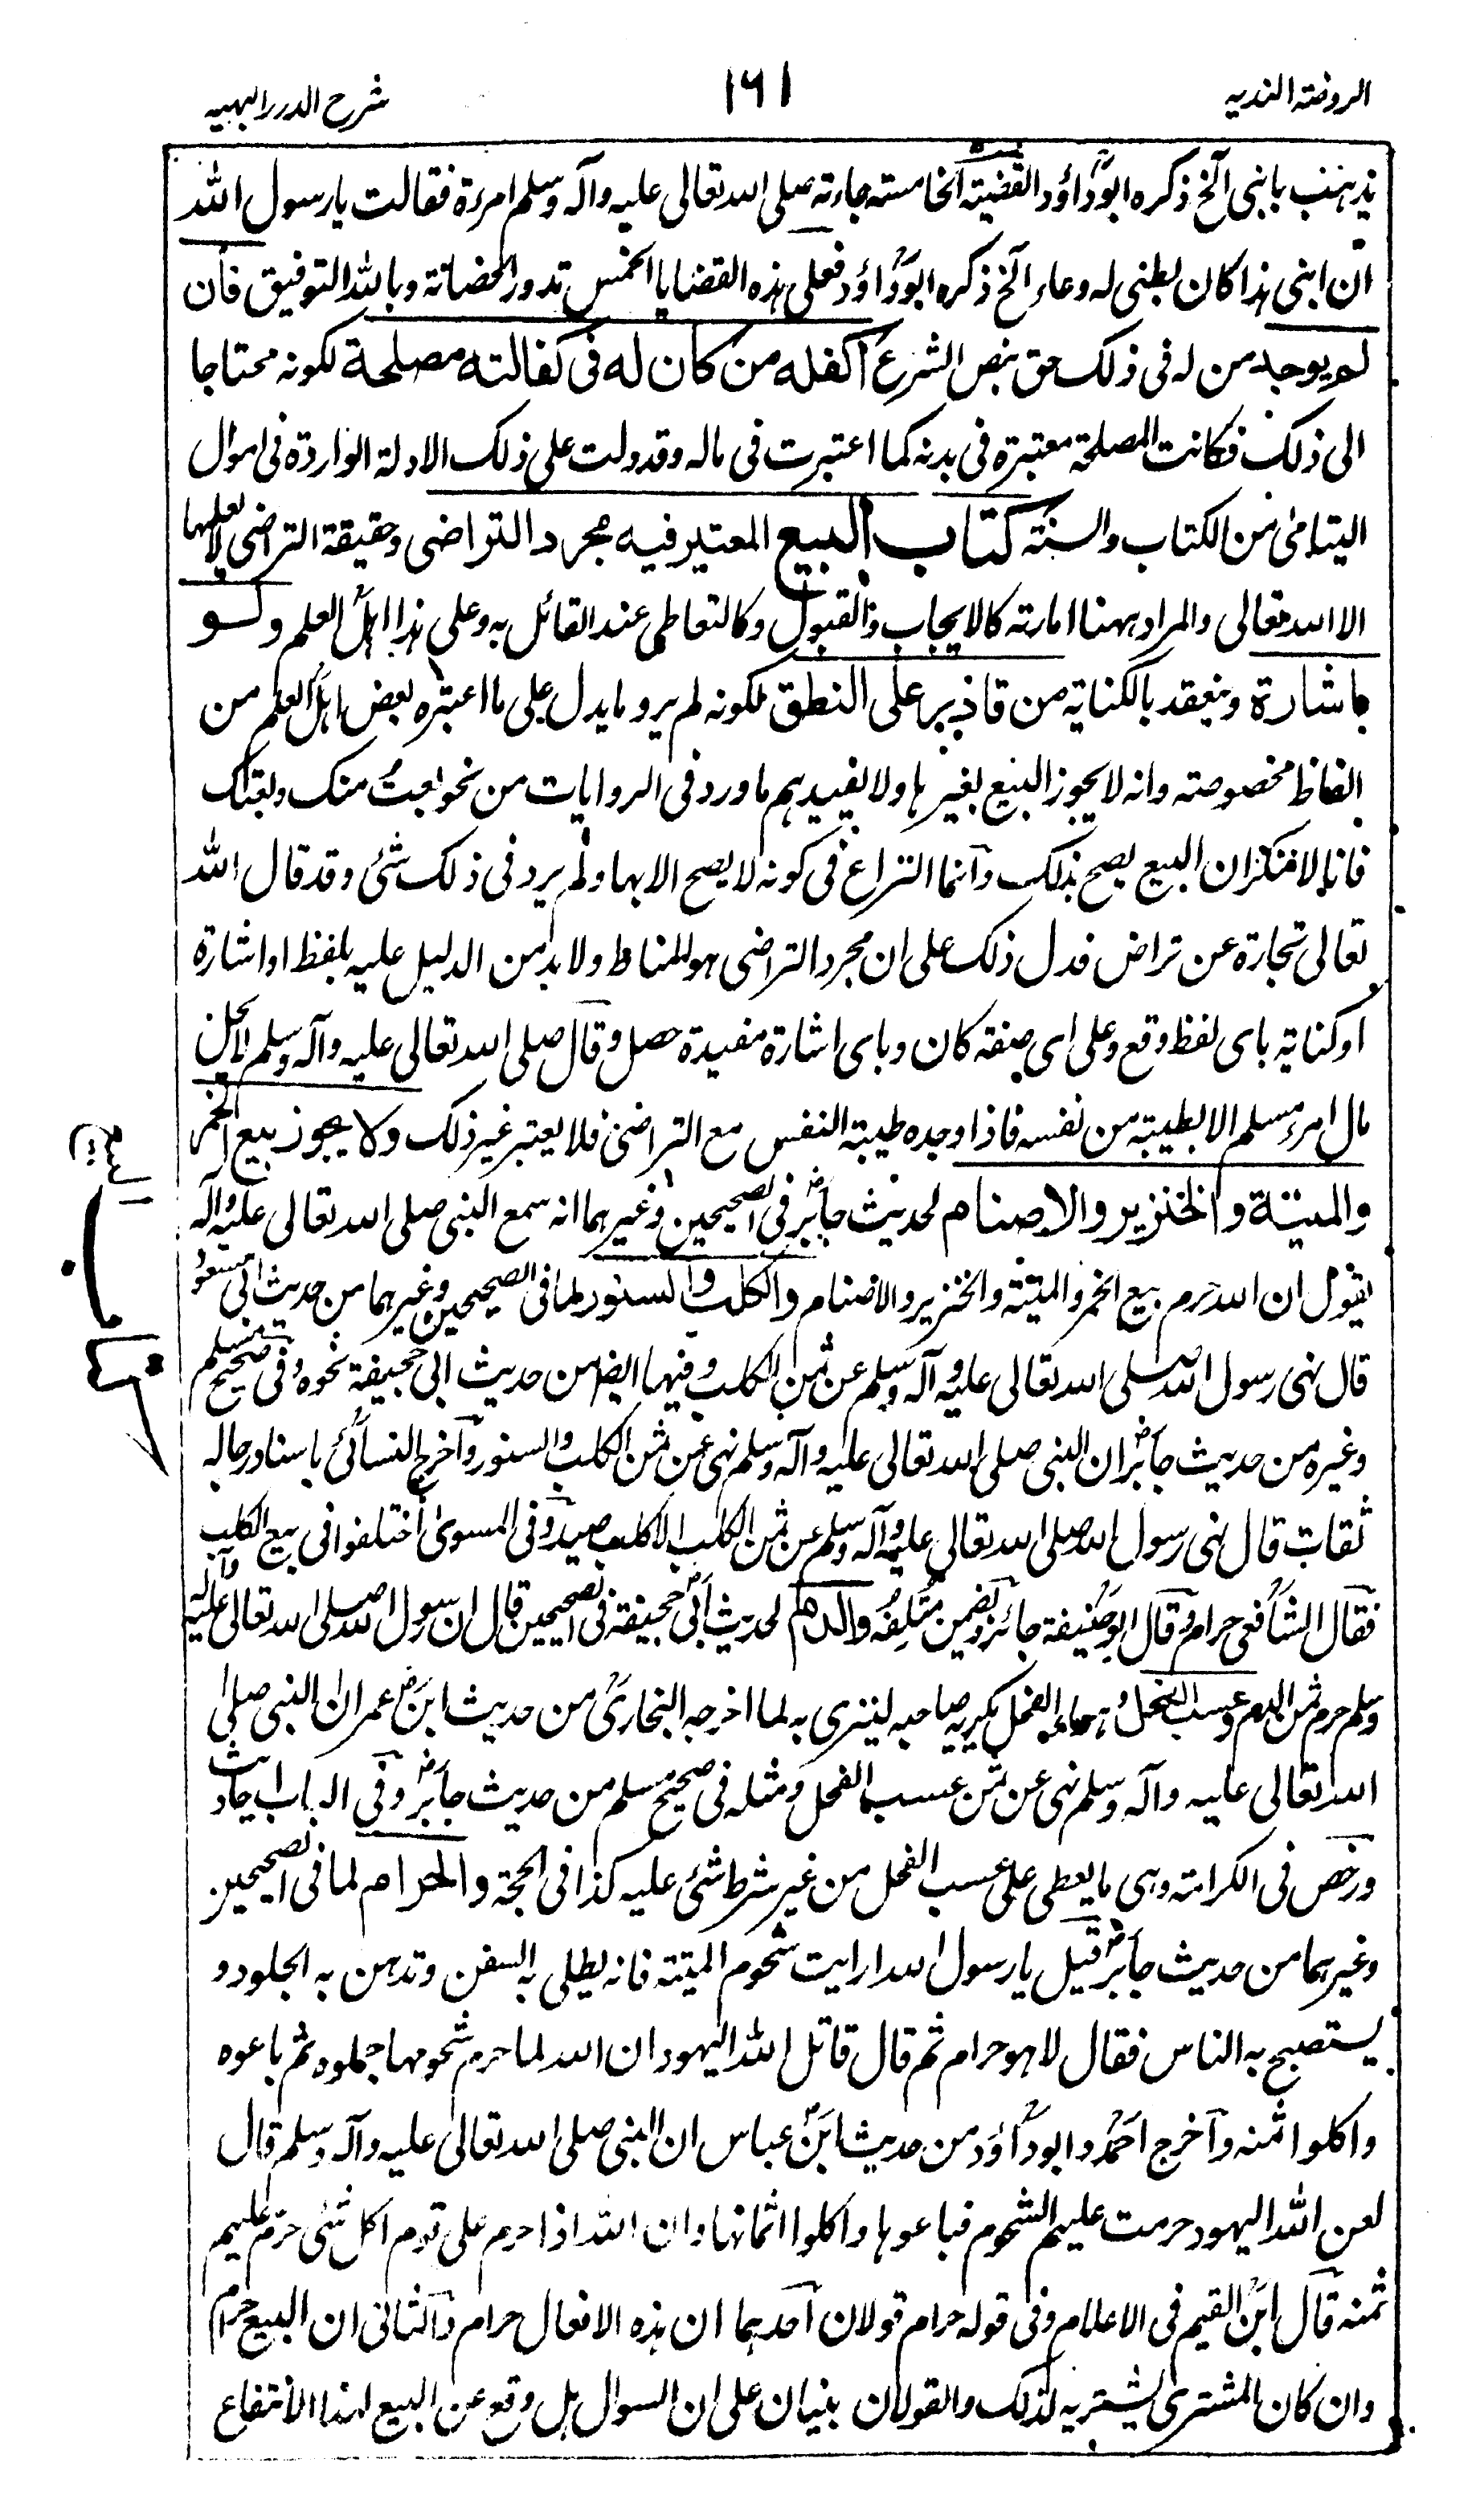 الروضة الندیه
۱۶۱
شرح الدرر البهیه
یذهب بابنی آلخ ذکره ابو داؤد القضیة الخامسة جاءته صلی الله تعالی علیه وآله وسلم امرءة فقالت یا رسول الله
ان ابنی هذا کان بطنی له وعاء آلخ ذکره ابو داؤد فعلی هذه القضایا الخمس تدور الحضانة وبالله التوفیق فان
لم یوجد من له فی ذلک حق بنص الشرع اکفله من کان له فی کفالته مصلحة لکونه محتاجا
الی ذلک فکانت المصلحة معتبرة فی بدنه کما اعتبرت فی ماله وقد دلت علی ذلک الادلة الواردة فی اموال
الیتامی من الکتاب والسنة کتاب البیع المعتبر فیه مجرد التراضی وحقیقة التراضی لا یعلمها
الا الله تعالی والمراد ههنا امارته کالایجاب والقبول وکالتعاطی عند القائل به وعلی هذا اهل العلم ولو
باشارة وینعقد بالکنایة من قادر علی النطق لکونه لم یرو ما یدل علی ما اعتبره بعض اهل العلم من
الفاظ مخصوصة وانه لا یجوز البیع بغیرها ولا یفیدهم ما ورد فی الروایات من نحو بعت منک وبعتک
فانا لا ننکر ان البیع یصح بذلک وانما النزاع فی کونه لا یصح الا بها ولم یرد فی ذلک شئ وقد قال الله
تعالی تجارة عن تراض فدل ذلک علی ان مجرد التراضی هو المناط ولا بد من الدلیل علیه بلفظ او اشارة
او کنایة بای لفظ وقع وعلی ای صفة کان وبای اشارة مفیدة حصل وقال صلی الله تعالی علیه وآله وسلم لا یحل
مال امرء مسلم الا بطیبة من نفسه فاذا وجده طیبة النفس مع التراضی فلا یعتبر غیر ذلک ولا یجوز بیع الخمر
والمیتة والخنزیر والاصنام لحدیث جابر فی الصحیحین وغیرهما انه سمع النبی صلی الله تعالی علیه وآله
یقول ان الله حرم بیع الخمر والمیتة والخنزیر والاصنام والکلب والسنور لما فی الصحیحین وغیرهما من حدیث ابی مسعود
قال نهی رسول الله صلی الله تعالی علیه وآله وسلم عن ثمن الکلب وفیهما ایضا من حدیث ابی جحیفة نحوه وفی صحیح مسلم
وغیره من حدیث جابر ان النبی صلی الله تعالی علیه وآله وسلم نهی عن ثمن الکلب والسنور واخرج النسائی باسناد رجاله
ثقات قال نهی رسول الله صلی الله تعالی علیه وآله وسلم عن ثمن الکلب الا کلب صید وفی المسوی اختلفوا فی بیع الکلب
فقال الشافعی حرام وقال ابو حنیفة جائز ویضمن متلفه والدم لحدیث ابی جحیفة فی الصحیحین قال ان رسول الله صلی الله تعالی علیه وآله
وسلم حرم ثمن الدم وعسب الفحل وهو ماء الفحل یکریه صاحبه لینزی به لما اخرجه البخاری من حدیث ابن عمر ان النبی صلی
الله تعالی علیه وآله وسلم نهی عن ثمن عسب الفحل ومثله فی صحیح مسلم من حدیث جابر وفی الباب احادیث
ورخص فی الکرامة وهی ما یعطی علی عسب الفحل من غیر شرط شئ علیه کذا فی الحجة والحرام لما فی الصحیحین
وغیرهما من حدیث جابر قیل یا رسول الله ارایت شحوم المیتة فانه یطلی به السفن وتدهن به الجلود و
یستصبح به الناس فقال لا هو حرام ثم قال قاتل الله الیهود ان الله لما حرم شحومها جملوه ثم باعوه
واکلوا ثمنه واخرج احمد وابو داؤد من حدیث ابن عباس ان النبی صلی الله تعالی علیه وآله وسلم قال
لعن الله الیهود حرمت علیهم الشحوم فباعوها واکلوا اثمانها وان الله اذا حرم علی قوم اکل شئ حرم علیهم
ثمنه قال ابن القیم فی الاعلام وفی قوله حرام قولان احدهما ان هذه الافعال حرام والثانی ان البیع حرام
وان کان المشتری یشتریه لذلک والقولان بنیان علی ان السوال هل وقع عن البیع لهذا الانتفاع